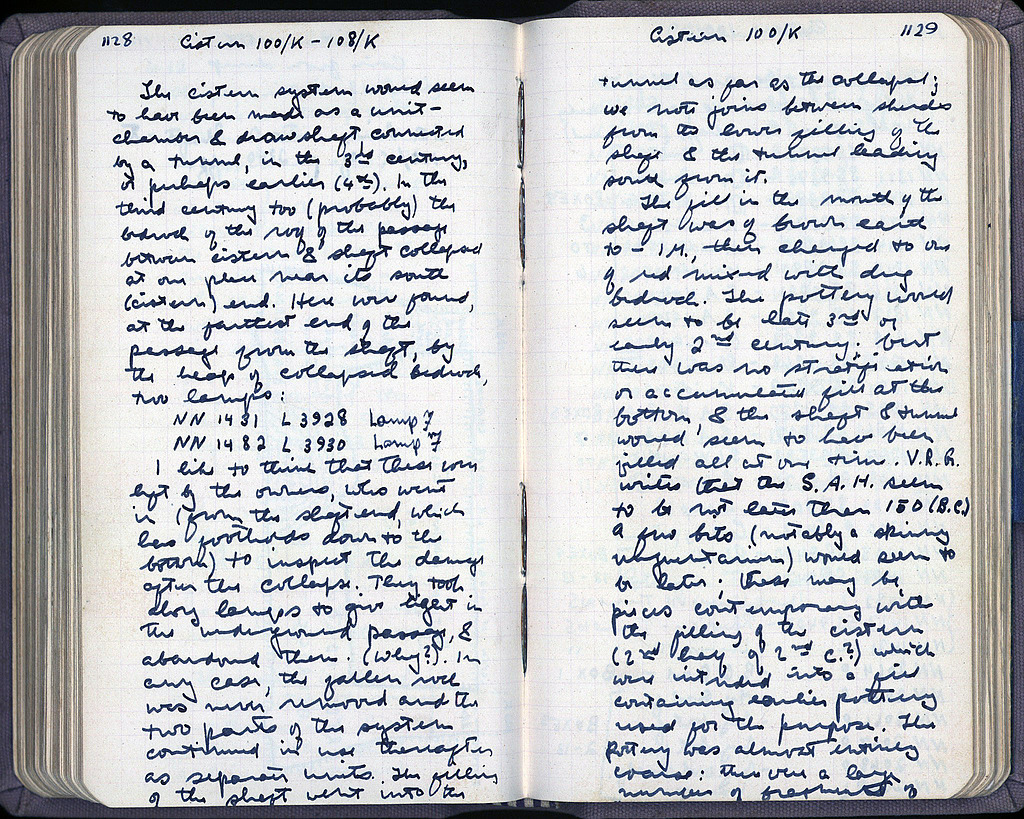 1128 Cistern 100/K - 108/K
The cistern system would seem
to have been made as a unit -
chamber & draw shaft connected
by a tunnel, in the 3rd century,
or perhaps earlier (4th). In the
third century too (probably) the
bedrock of the roof of the passage
between cistern & shaft collapsed
at one place near its south
(cistern) end. Here were found,
at the farthest end of the
passage from the shaft, by
the heap of collapsed bedrock,
two lamps:
NN 1431 L 3928 Lamp 7
NN 1482 L 3930 Lamp 7
I like to think that these were
left by the owners, who went
in (from the shaft end, which
has footholds down to the
bottom) to inspect the damage
after the collapse. They took
along lamps to give light in
the underground passage, &
abandoned them. (Why?). In
any case, the fallen rock
was never removed and the
two parts of the system
continued in use thereafter
as separate units. The filling
of the shaft went into the
Cistern 100/K 1129
tunnel as far as the collapse;
we note joins between sherds
from the lower filling of the
shaft & the tunnel leading
south from it.
The fill in the mouth of the
shaft was of brown earth
to - 1 M., then changed to one
of red mixed with dug
bedrock. The pottery would
seem to be late 3rd or
early 2nd century; but
there was no stratification
or accumulated fill at the
bottom, & the shaft & tunnel
would seem to have been
filled all at one time. V.R.G.
writes that the S.A.H. seem
to be not later than 150 (B.C.)
A few bits (notably a skinny
unguentarium) would seem to
be later; these may be
pieces contemporary with
the filling of the cistern
(2nd half of 2nd c.?) which
were intruded into a fill
containing earlier pottery
used for the purpose. The
pottery was almost entirely
coarse: there were a large
number of fragments of